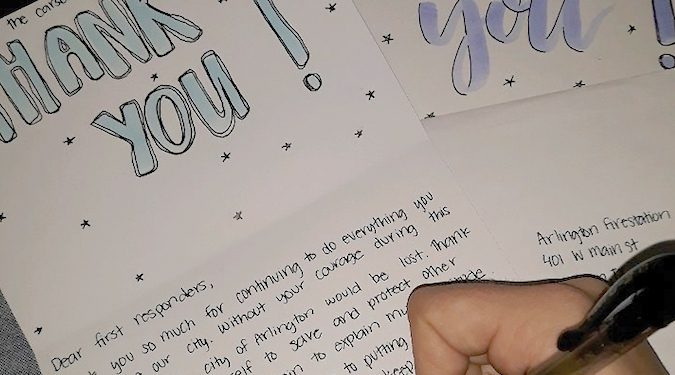 the
THANK
YOU!
you!
Dear first responders,
you so much for continuing to do everything you
our city. Without your courage during this
city of Arlington would be lost. Thank
to save and protect other
to explain
to putting
keep
Arlington Firestation
401 W main st